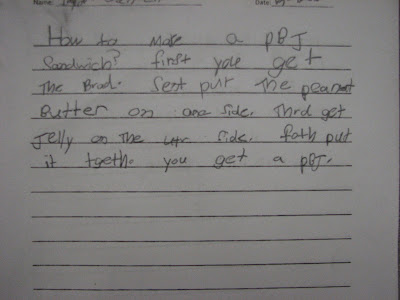 Name:
Date
How to Make a PBJ
Sandwich? first you get
The Brad. Sest put The peanut
Butter on one side. Thrd get
Jelly on The uthr side. foth put
it tgeth. you get a PBJ.